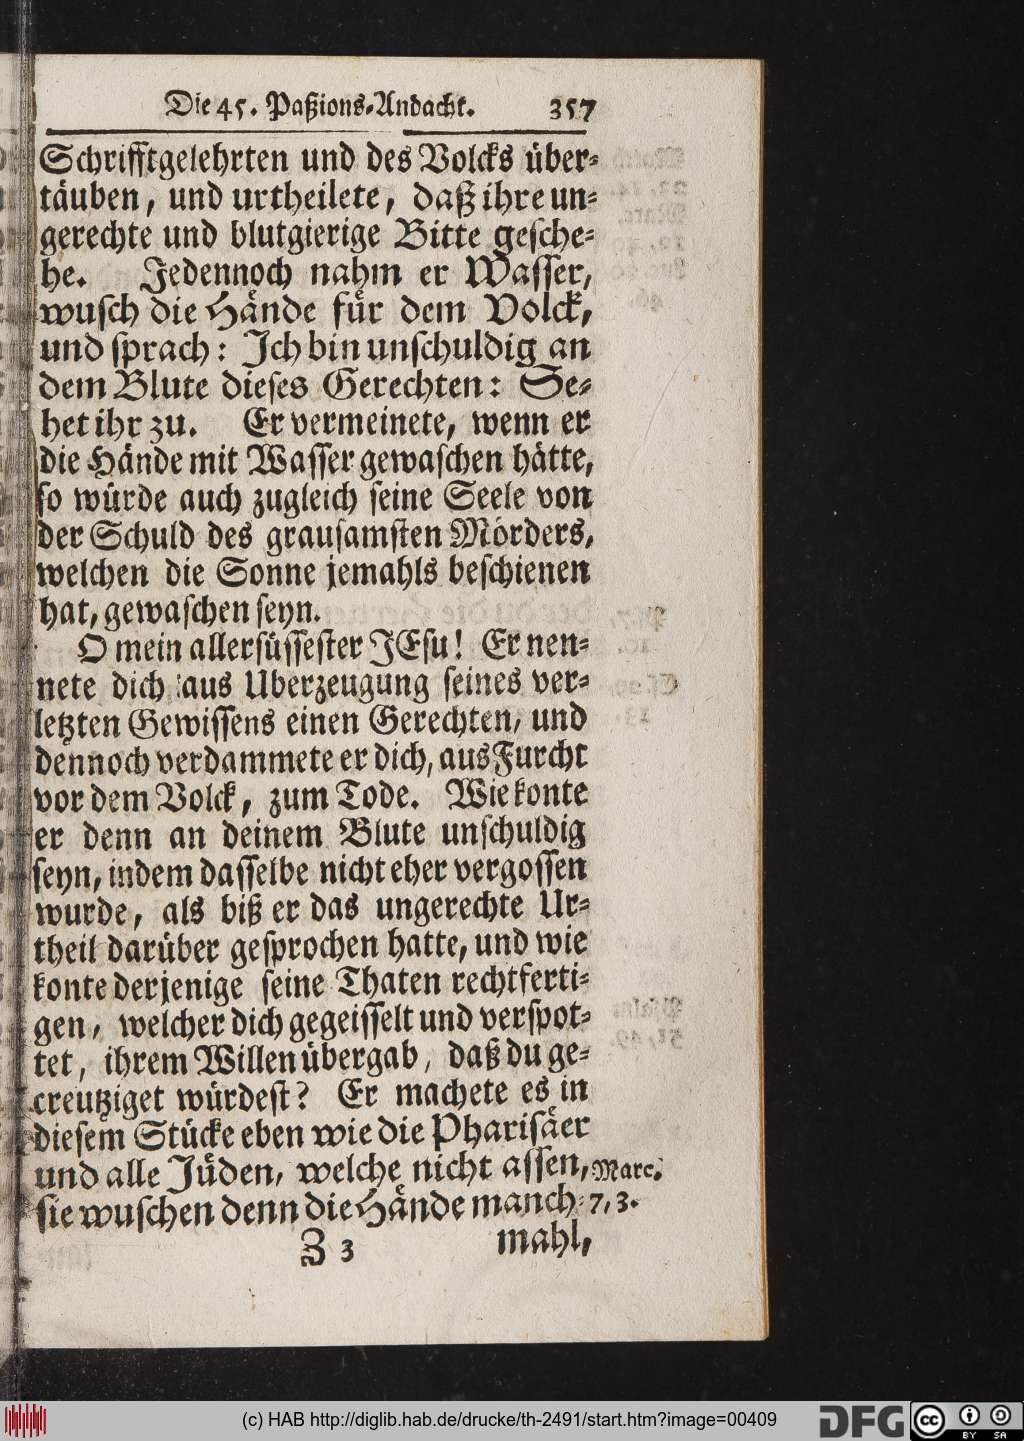 Die 45. Paßions-Andacht. 357
Schrifftgelehrten und des Volcks über-
täuben, und urtheilete, daß ihre un-
gerechte und blutgierige Bitte gesche-
he. Jedennoch nahm er Wasser,
wusch die Hände für dem Volck,
und sprach: Ich bin unschuldig an
dem Blute dieses Gerechten: Se-
het ihr zu. Er vermeinete, wenn er
die Hände mit Wasser gewaschen hätte,
so würde auch zugleich seine Seele von
der Schuld des grausamsten Mörders,
welchen die Sonne jemahls beschienen
hat, gewaschen seyn.
O mein allersüssester JEsu! Er nen-
nete dich aus Uberzeugung seines ver-
letzten Gewissens einen Gerechten, und
dennoch verdammete er dich, aus Furcht
vor dem Volck, zum Tode. Wie konte
er denn an deinem Blute unschuldig
seyn, indem dasselbe nicht eher vergossen
wurde, als biß er das ungerechte Ur-
theil darüber gesprochen hatte, und wie
konte derjenige seine Thaten rechtferti-
gen, welcher dich gegeisselt und verspot-
tet, ihrem Willen übergab, daß du ge-
creutziget würdest? Er machete es in
diesem Stücke eben wie die Pharisäer
und alle Jüden, welche nicht assen, Marc.
sie wuschen denn die Hände manch- 7, 3.
Z 3 mahl,
(c) HAB http://diglib.hab.de/drucke/th-2491/start.htm?image=00409
DFG cc BY SA